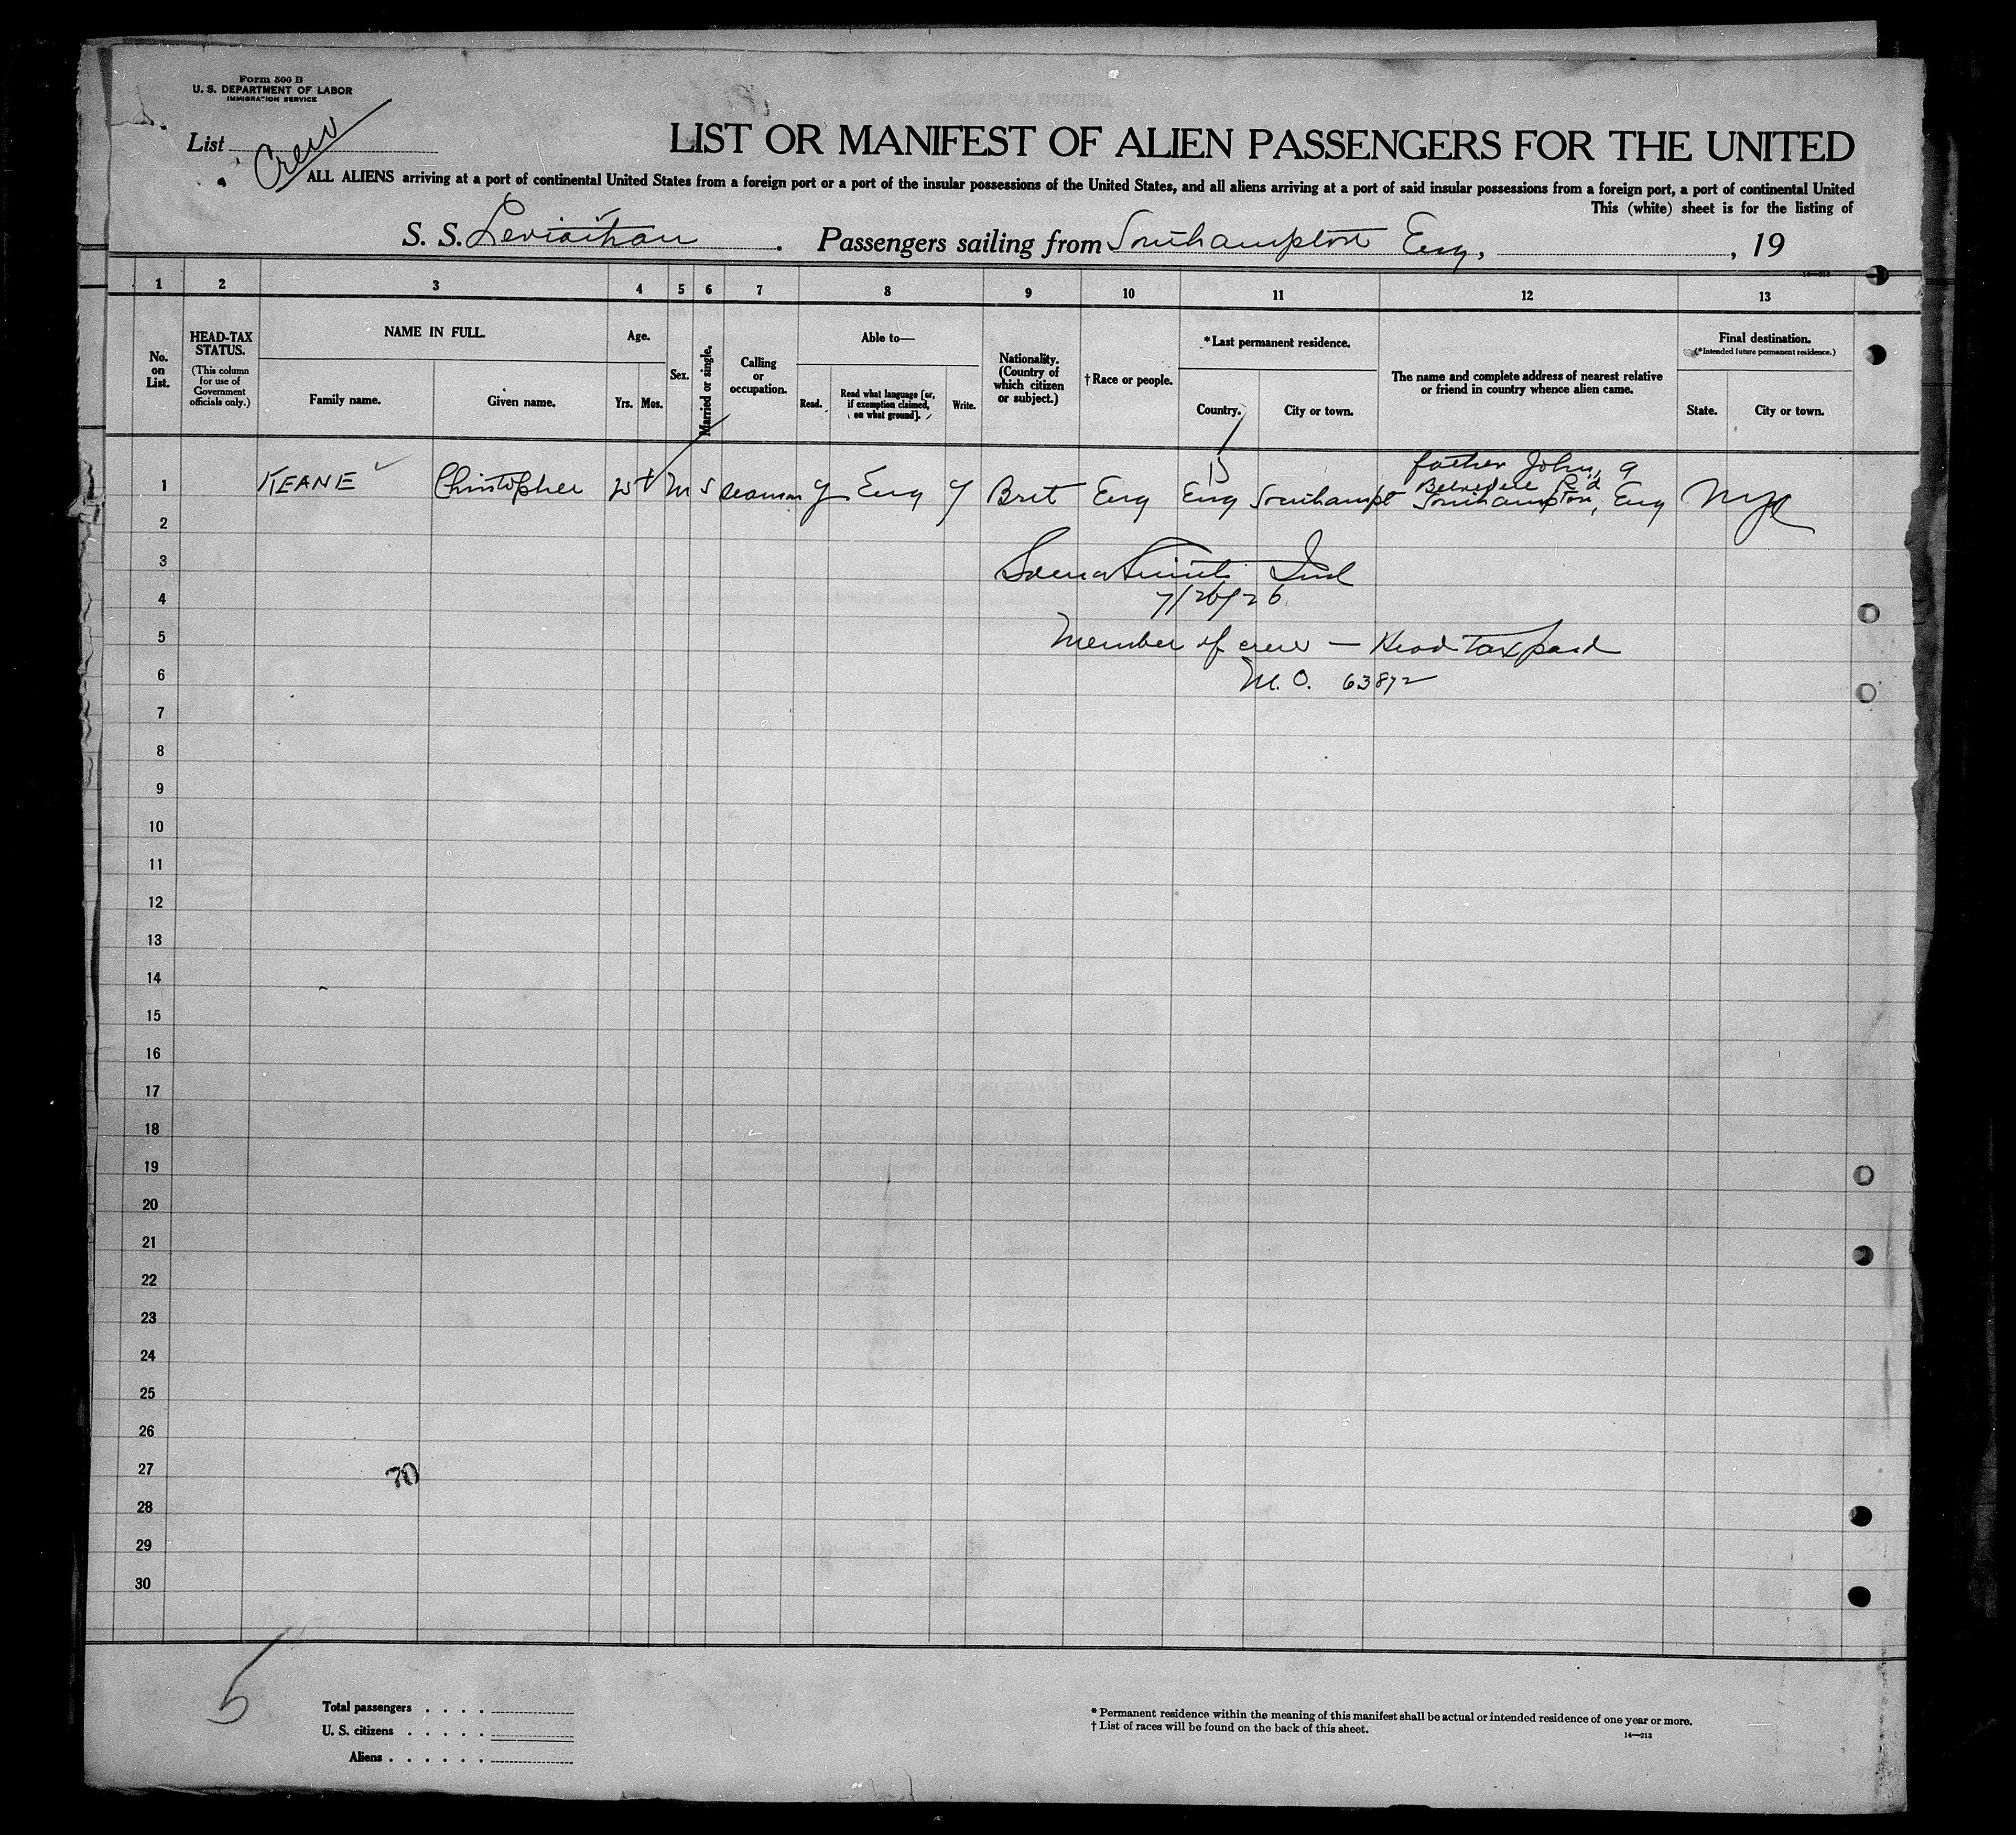 Form 500 B
U. S. DEPARTMENT OF LABOR
IMMIGRATION SERVICE
List Crew
LIST OR MANIFEST OF ALIEN PASSENGERS FOR THE UNITED
ALL ALIENS arriving at a port of continental United States from a foreign port or a port of the insular possessions of the United States, and all aliens arriving at a port of said insular possessions from a foreign port, a port of continental United
This (white) sheet is for the listing of
S. S. Leviathan. Passengers sailing from Southampton Eng, , 19
1 2 3 4 5 6 7 8 9 10 11 12 13
No. on List.
HEAD-TAX STATUS.
(This column for use of Government officials only.)
NAME IN FULL.
Family name.
Given name.
Age.
Yrs. Mos.
Sex.
Married or single.
Calling or occupation.
Able to—
Read.
Read what language [or, if exemption claimed, on what ground].
Write.
Nationality. (Country of which citizen or subject.)
†Race or people.
*Last permanent residence.
Country.
City or town.
The name and complete address of nearest relative or friend in country whence alien came.
Final destination.
(*Intended future permanent residence.)
State.
City or town.
father John, 9
1 KEANE Christopher M S seaman y Eng y Brit Eng Eng Southampt Belvedere R'd
Southampton, Eng NYC
2
3
4 7/26/26
5 Member of crew — Head Tax paid
6 M. O. 63872
7
8
9
10
11
12
13
14
15
16
17
18
19
20
21
22
23
24
25
26
27 70
28
29
30
5
Total passengers . . . .
U. S. citizens . . . . .
Aliens . . . . . .
* Permanent residence within the meaning of this manifest shall be actual or intended residence of one year or more.
† List of races will be found on the back of this sheet.
14—213